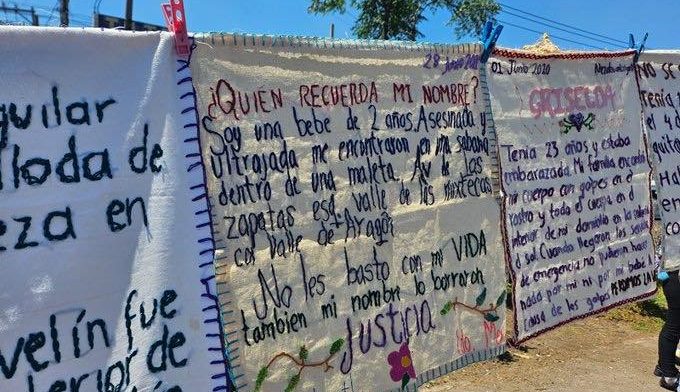 guilar
lloda de
eza en
velín fue
erior de
28 Junio
¿QUIEN RECUERDA MI NOMBRE?
Soy una bebe de 2 años. Asesinada y
ultrajada me encontraron en una sabana
dentro de una maleta. Av de las
zapatas esq valle de las mixtecas
col valle de Aragón
No les basto con mi VIDA
tambien mi nombre lo borraron
Justicia
No. Mx
01 Junio 2020
GRISELDA
Tenía 23 años y estaba
embarazada. Mi familia encontró
mi cuerpo con golpes en el
rostro y todo el cuerpo en el
interior de mi domicilio en la colonia
el sol. Cuando llegaron los
de emergencia no pudieron hacer
nada por mi ni por mi bebe a
causa de los golpes.
NO SE
Tenía
el 4 d